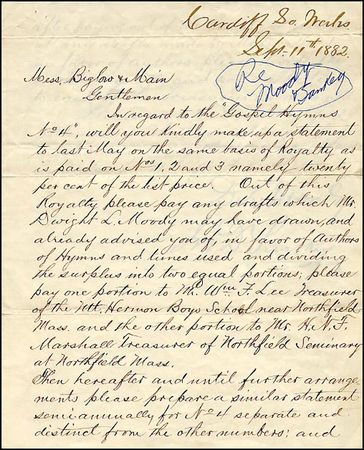 Cardiff So. Wales
Sep. 11th 1882.
Re
Moody
& Sankey
Mess, Biglow & Main
Gentlemen
In regard to the "Gospel Hymns
No 4", will you kindly make up a statement
to last May on the same basis of Royalty as
is paid on Nos 1, 2 and 3 namely twenty
per cent of the list price. Out of this
Royalty please pay any drafts which Mr.
Dwight L. Moody may have drawn, and
already advised you of, in favor of Authors
of Hymns and tunes used and dividing
the surplus into two equal portions, please
pay one portion to Mr. Wm F. Lee Treasurer
of the Mt. Hermon Boys School near Northfield
Mass. and the other portion to Mr. H. N. F.
Marshall Treasurer of Northfield Seminary
at Northfield Mass.
Then hereafter and until further arrange
ments please prepare a similar statement
semi annually for No 4 separate and
distinct from the other numbers; and